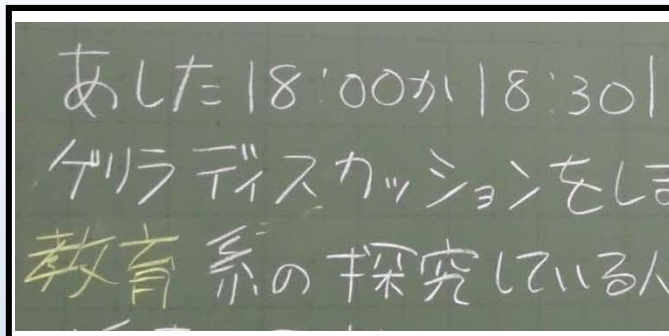 あした18:00か18:30
ゲリラディスカッションをしま
教育系の探究している人